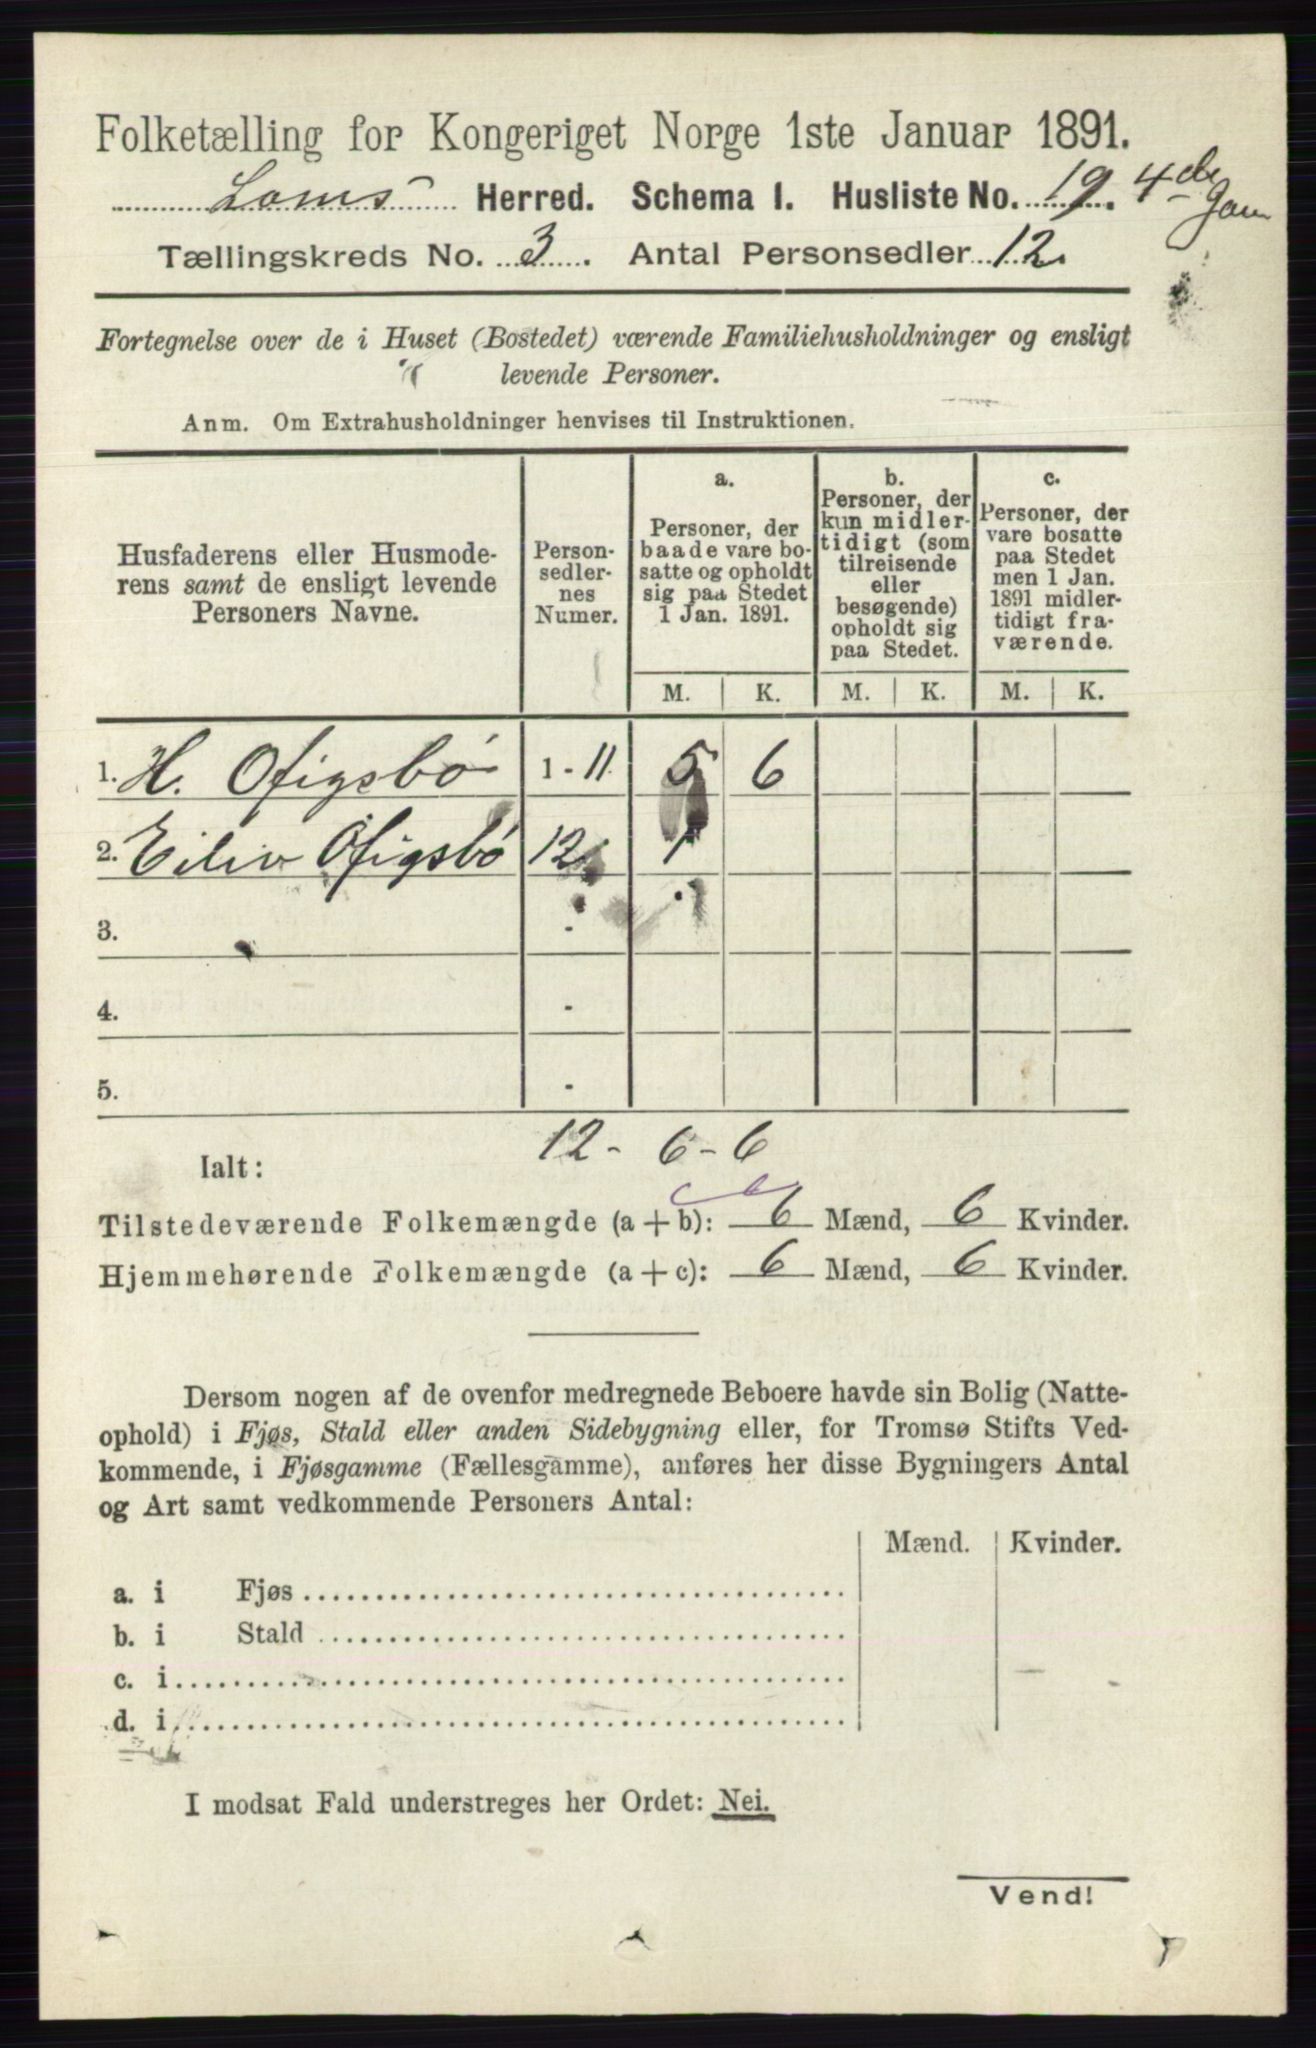 Folketælling for Kongeriget Norge 1ste Januar 1891.
Loms Herred. Schema I. Husliste No. 19. 4de Jan
Tællingskreds No. 3. Antal Personsedler 12.
Fortegnelse over de i Huset (Bostedet) værende Familiehusholdninger og ensligt
levende Personer.
Anm. Om Extrahusholdninger henvises til Instruktionen.
Husfaderens eller Husmode-
rens samt de ensligt levende
Personers Navne.
Person-
sedler-
nes
Numer.
a.
Personer, der
baade vare bo-
satte og opholdt
sig paa Stedet
1 Jan. 1891.
b.
Personer, der
kun midler-
tidigt (som
tilreisende
eller
besøgende)
opholdt sig
paa Stedet.
c.
Personer, der
vare bosatte
paa Stedet
men 1 Jan.
1891 midler-
tidigt fra-
værende.
M. K. M. K. M. K.
1. H. Ofigsbø 1 - 11. 5 6
2. Eiliv Ofigsbø 12 1
3. -
4. -
5. -
12 - 6 - 6
Ialt:
Tilstedeværende Folkemængde (a + b): 6 Mænd, 6 Kvinder.
Hjemmehørende Folkemængde (a + c): 6 Mænd, 6 Kvinder.
Dersom nogen af de ovenfor medregnede Beboere havde sin Bolig (Natte-
ophold) i Fjøs, Stald eller anden Sidebygning eller, for Tromsø Stifts Ved-
kommende, i Fjøsgamme (Fællesgamme), anføres her disse Bygningers Antal
og Art samt vedkommende Personers Antal:
Mænd. Kvinder.
a. i Fjøs
b. i Stald
c. i
d. i
I modsat Fald understreges her Ordet: Nei.
Vend!